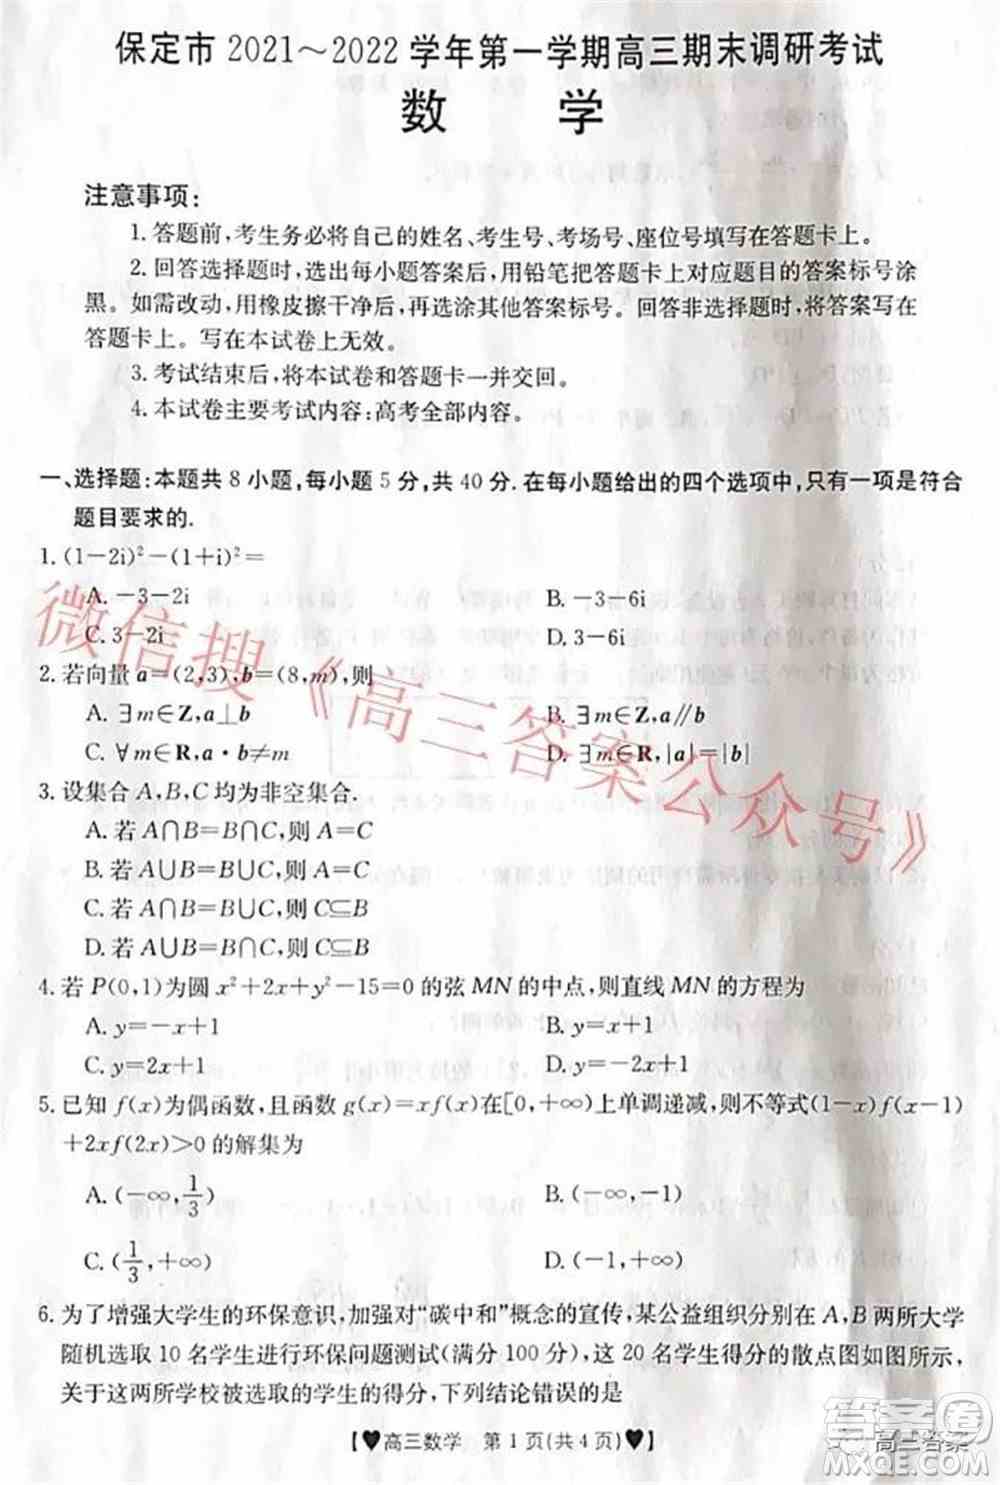 保定市 2021～2022 学年第一学期高三期末调研考试
数 学
注意事项:
1. 答题前,考生务必将自己的姓名、考生号、考场号、座位号填写在答题卡上。
2. 回答选择题时,选出每小题答案后,用铅笔把答题卡上对应题目的答案标号涂
黑。如需改动,用橡皮擦干净后,再选涂其他答案标号。回答非选择题时,将答案写在
答题卡上。写在本试卷上无效。
3. 考试结束后,将本试卷和答题卡一并交回。
4. 本试卷主要考试内容:高考全部内容。
一、选择题:本题共 8 小题,每小题 5 分,共 40 分.在每小题给出的四个选项中,只有一项是符合
题目要求的.
1. (1−2i)²−(1+i)²=
A. −3−2i B. −3−6i
C. 3−2i D. 3−6i
2. 若向量 a=(2,3),b=(8,m),则
A. ∃m∈Z,a⊥b B. ∃m∈Z,a∥b
C. ∀m∈R,a·b≠m D. ∃m∈R,|a|=|b|
3. 设集合 A,B,C 均为非空集合.
A. 若 A∩B=B∩C,则 A=C
B. 若 A∪B=B∪C,则 A=C
C. 若 A∩B=B∪C,则 C⊆B
D. 若 A∪B=B∩C,则 C⊆B
4. 若 P(0,1)为圆 x²+2x+y²−15=0 的弦 MN 的中点,则直线 MN 的方程为
A. y=−x+1 B. y=x+1
C. y=2x+1 D. y=−2x+1
5. 已知 f(x)为偶函数,且函数 g(x)=xf(x)在[0,+∞)上单调递减,则不等式(1−x)f(x−1)
+2xf(2x)>0 的解集为
A. (−∞,1/3) B. (−∞,−1)
C. (1/3,+∞) D. (−1,+∞)
6. 为了增强大学生的环保意识,加强对“碳中和”概念的宣传,某公益组织分别在 A,B 两所大学
随机选取 10 名学生进行环保问题测试(满分 100 分),这 20 名学生得分的散点图如图所示,
关于这两所学校被选取的学生的得分,下列结论错误的是
【♥高三数学 第 1 页(共 4 页)♥】
微信搜《高三答案公众号》
答案圈
高三答案
MXQE.COM